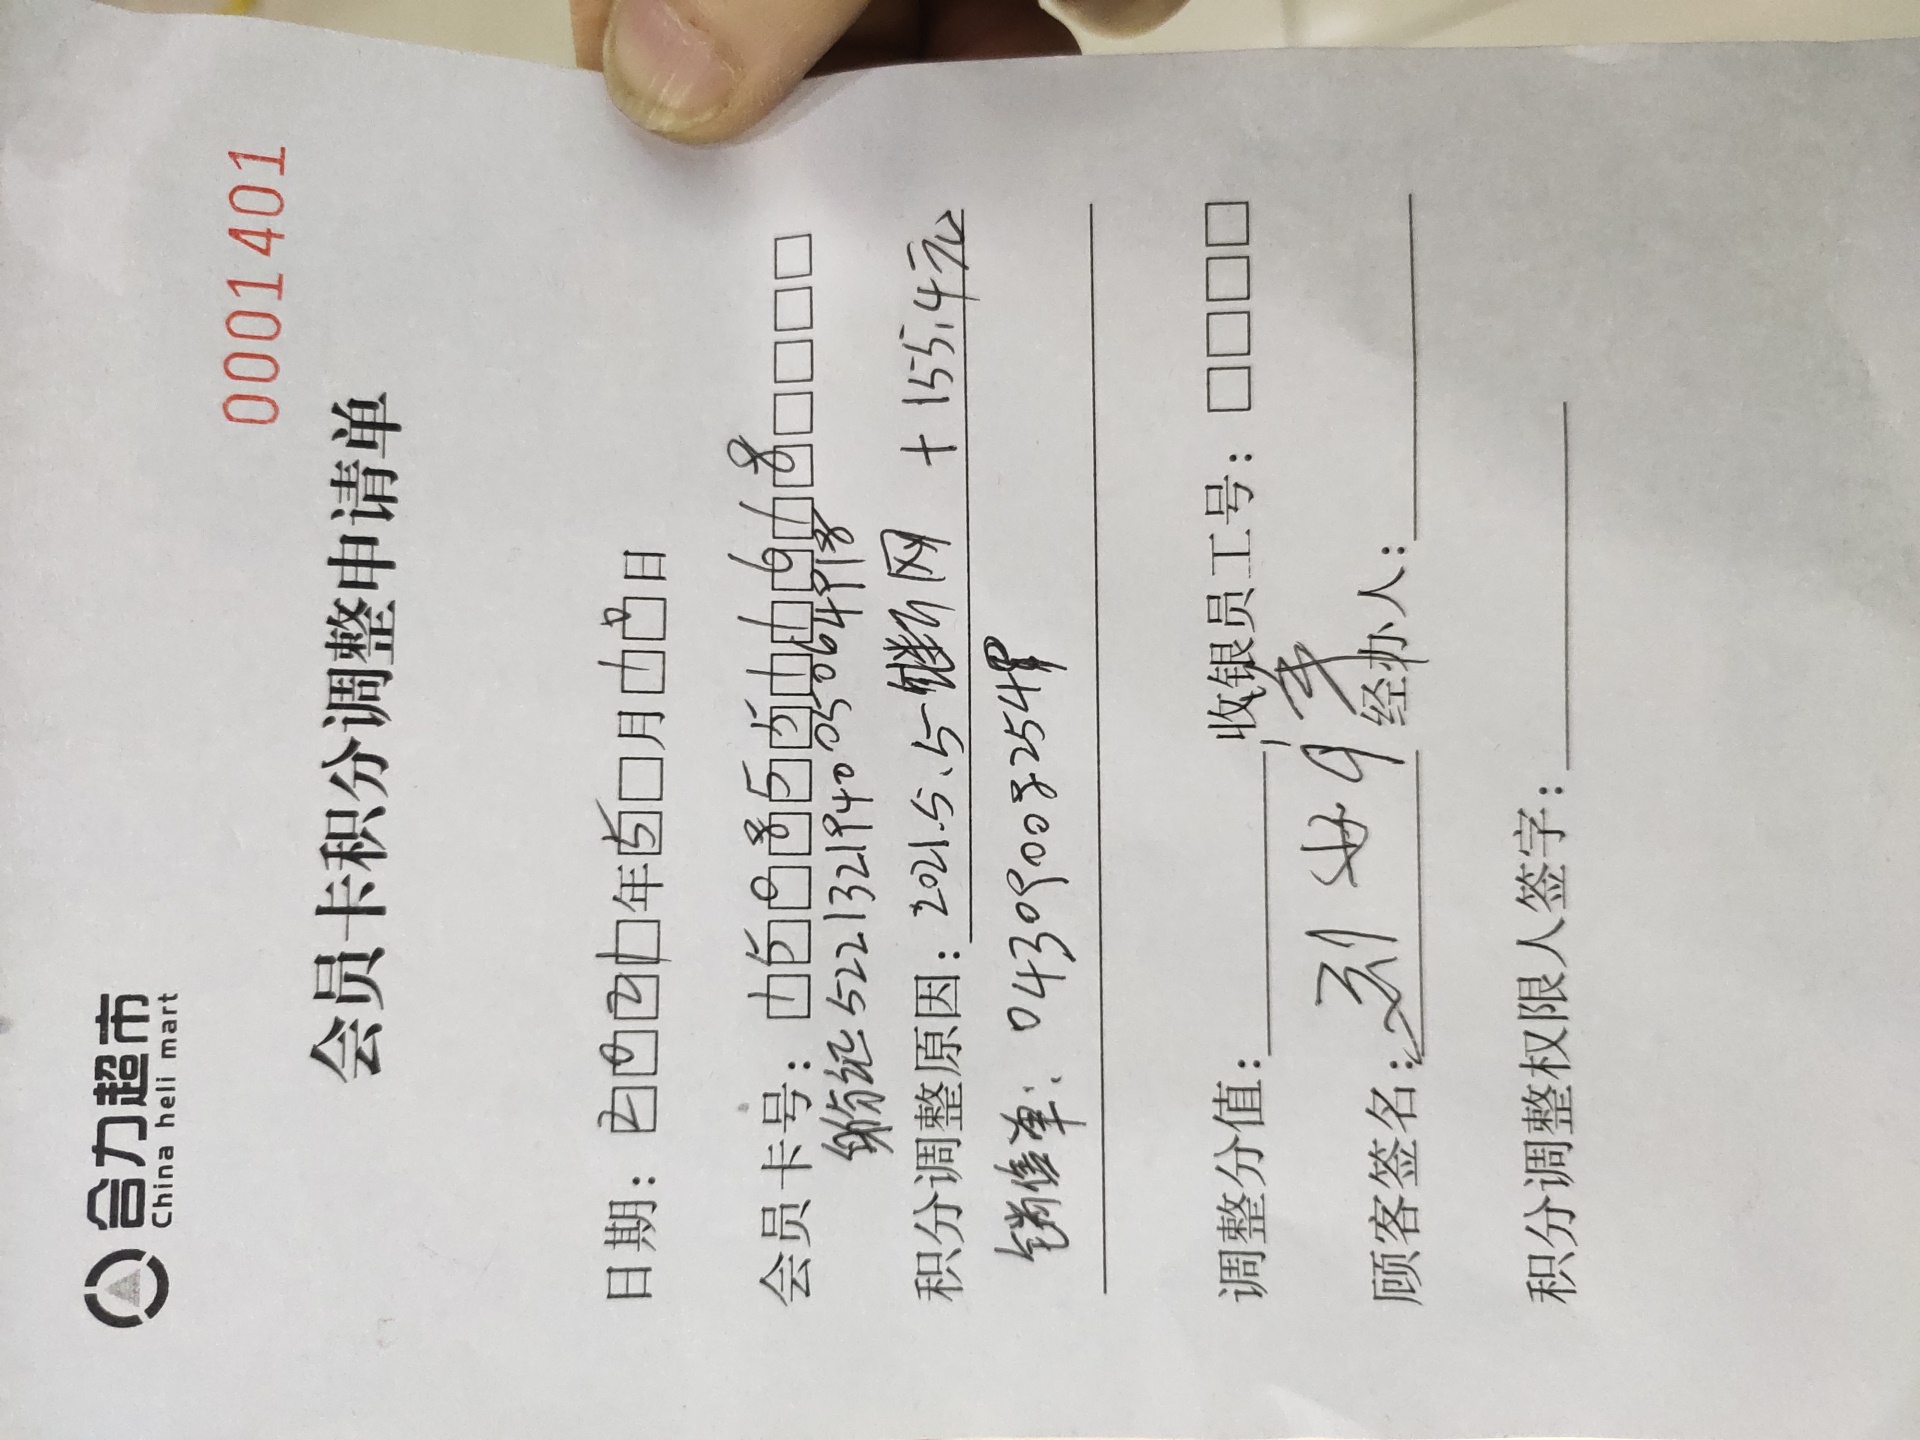 合力超市
China heli mart
0001401
会员卡积分调整申请单
日期：2021年5月18日
会员卡号：15085511618
身份证522132194005064918
积分调整原因：2021.5.5断网 +155.4元
销售单：04309008254
调整分值： 收银员工号：
顾客签名： 经办人：
积分调整权限人签字：